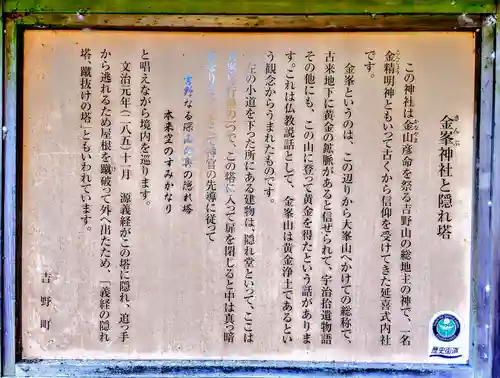 金峯神社と隠れ塔
きんぷ
この神社は金山彦命を祭る吉野山の総地主の神で、一名
金精明神ともいって古くから信仰を受けてきた延喜式内社
です。
金峯というのは、この辺りから大峯山へかけての総称で、
古来地下に黄金の鉱脈があると信ぜられて、宇治拾遺物語
その他にも、この山に登って黄金を得たという話がありま
す。これは仏教説話として、金峯山は黄金浄土であるとい
う観念からうまれたものです。
左の小道を下った所にある建物は、隠れ堂といって、ここは
行場の一つで、この塔に入って扉を閉じると中は真っ暗
の先導に従って
吉野なる深山の奥の隠れ塔
本来空のすみかなり
と唱えながら境内を巡ります。
文治元年(一一八五)十一月 源義経がこの塔に隠れ、追っ手
から逃れるため屋根を蹴破って外へ出たため、「義経の隠れ
塔、蹴抜けの塔」ともいわれています。
吉野町
歴史街道